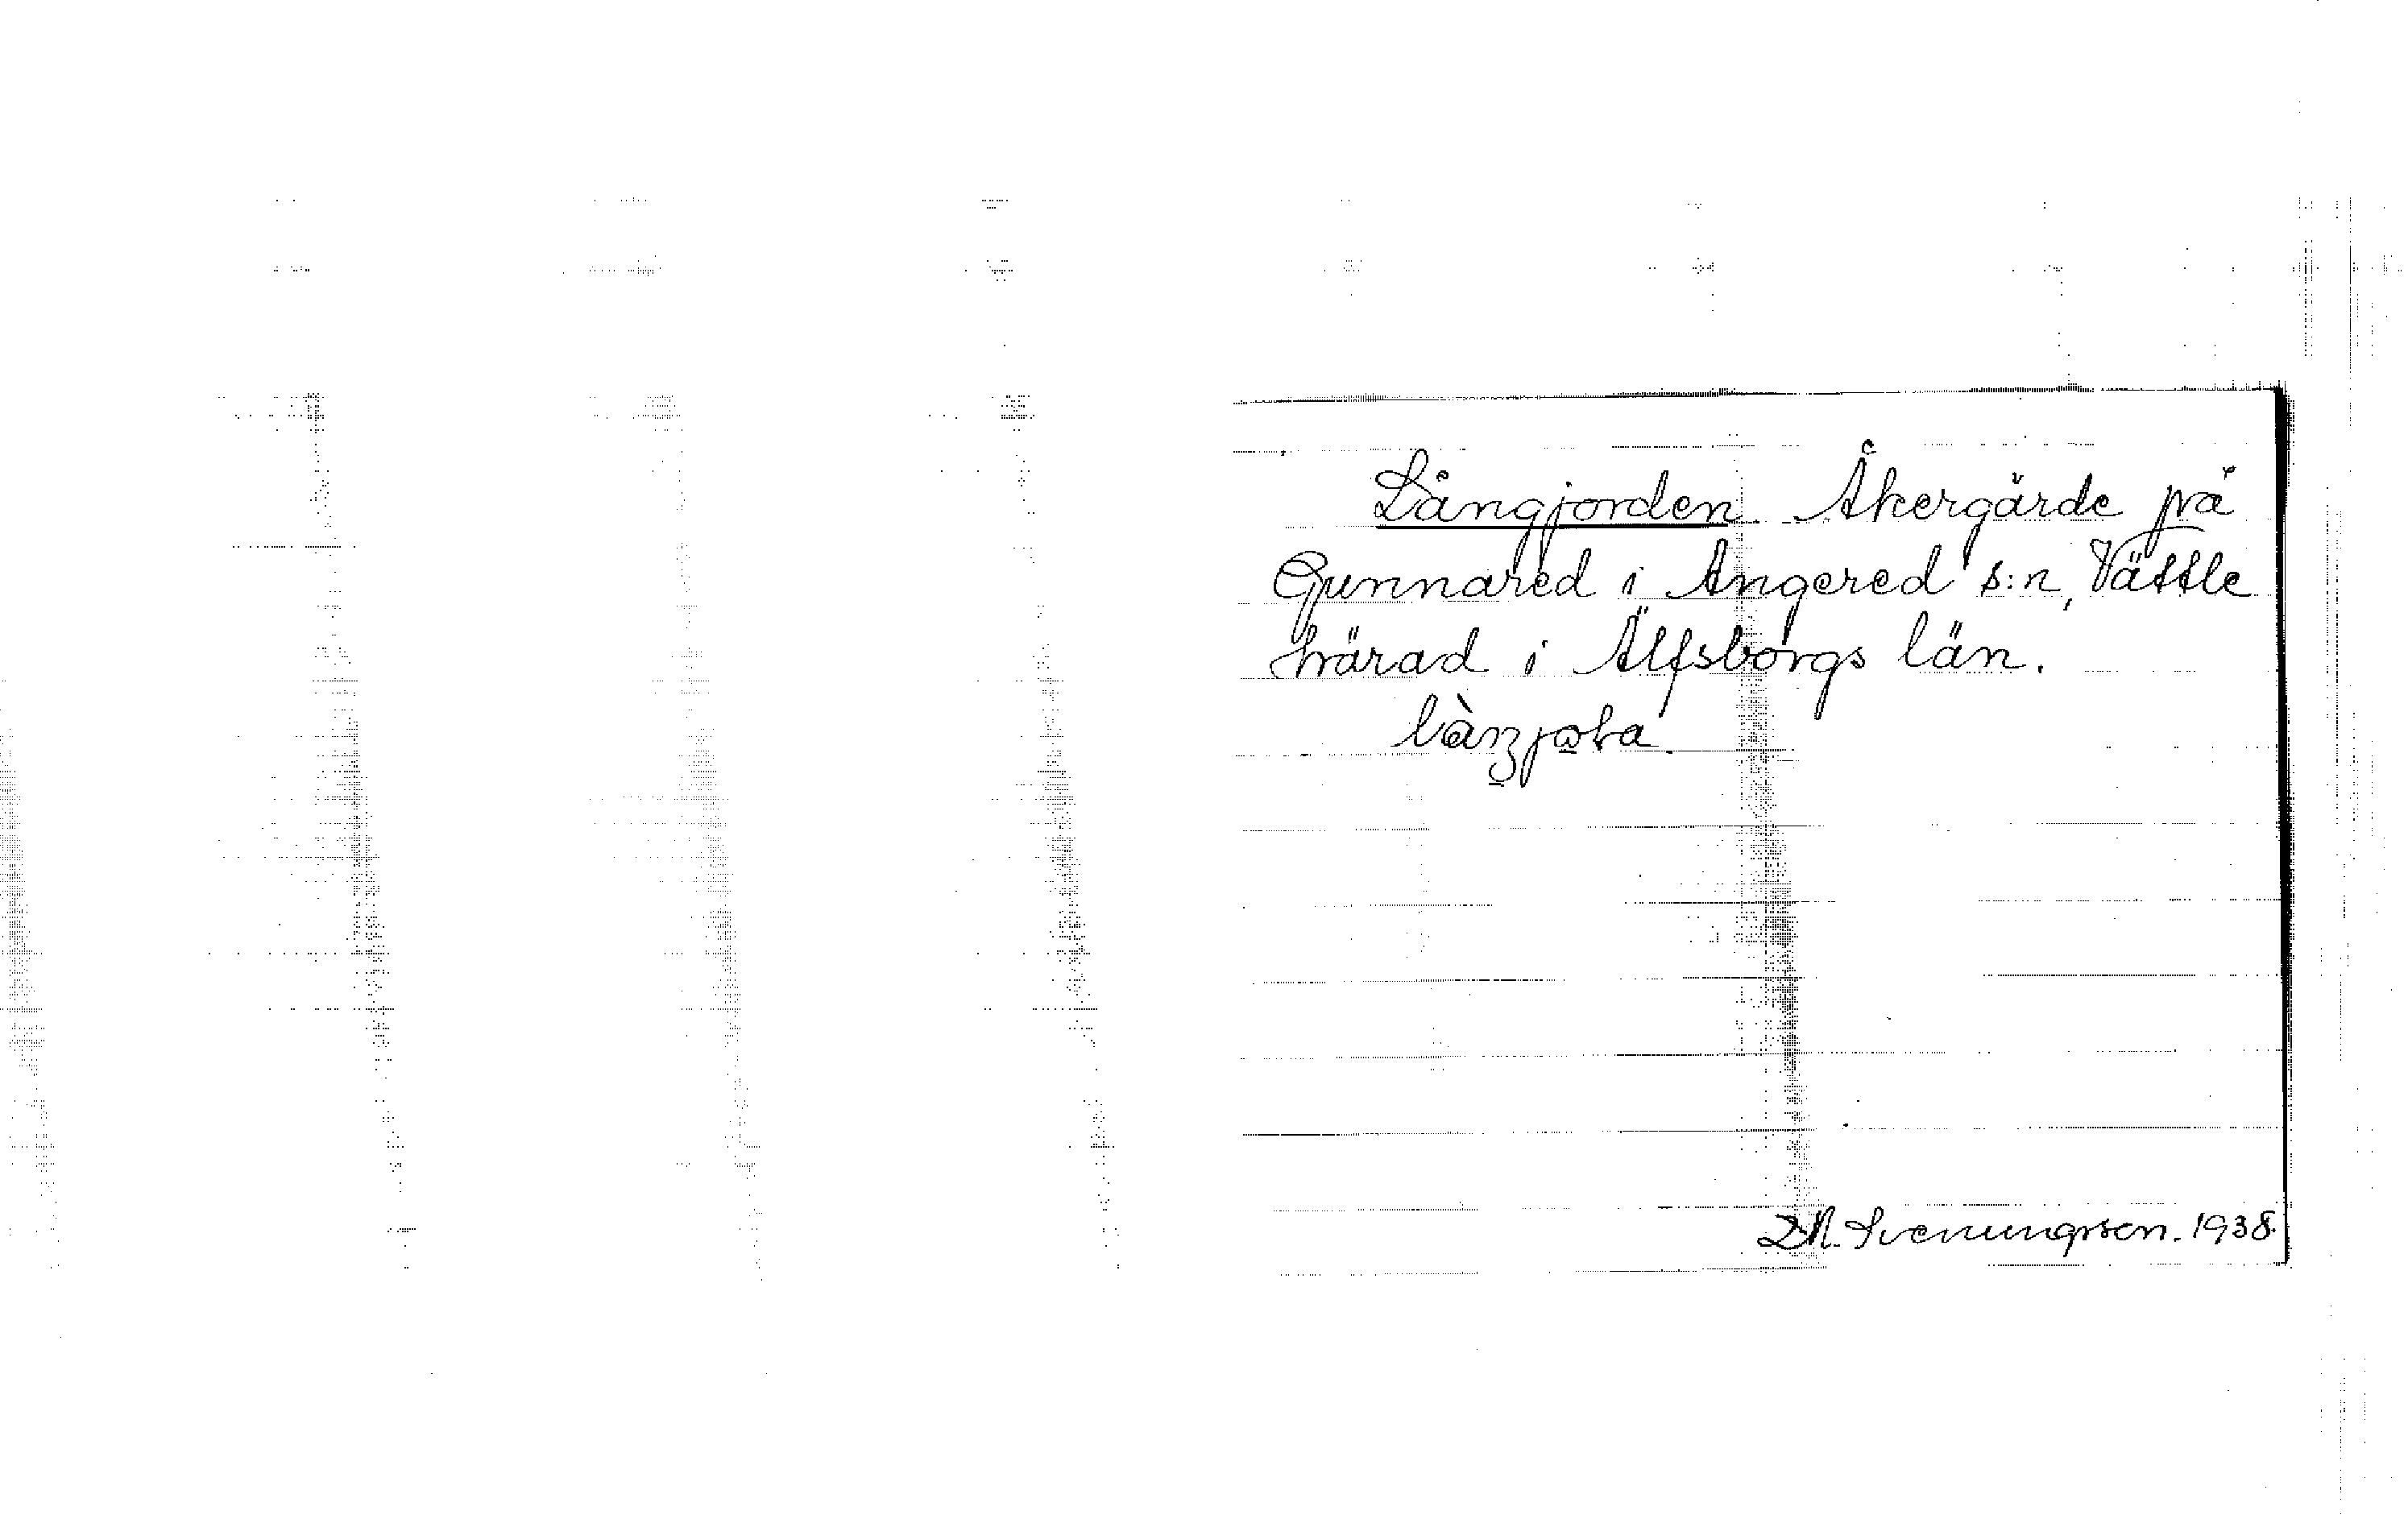 Långjorden. Åkergärde på
Gunnared i Angered s:n, Vättle
härad i Älfsborgs län.
D.A. Svenungsson. 1938.